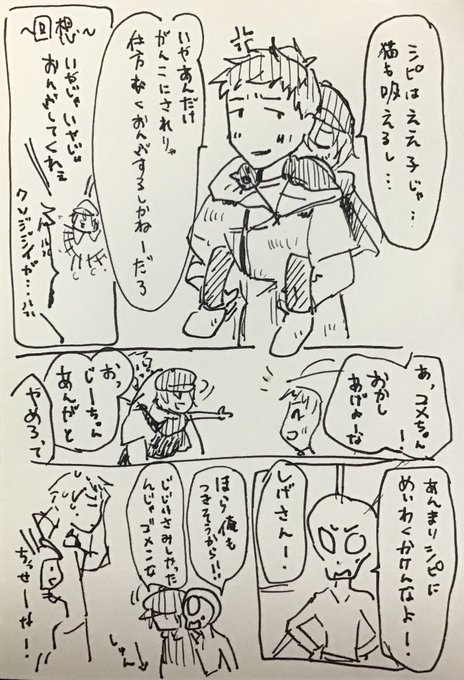 シピはええ子じゃ…
猫も吸えるし…
いやあんだけ
がんこにされりゃ
仕方なくおんぶするしかねーだろ
〜回想〜
いやじゃいやじゃ
おんぶしてくれぇ
クソジジイが…
あ、コメちゃん!
おかし
あげよーな
おっ
じーちゃん
あんがと
やめろって
あんまりシピに
めいわくかけんなよー!
しげさんー!
ほら俺も
つきそうから!!
じじいさみしかった
んじゃゴメンな
しゅん
ちっせーな!